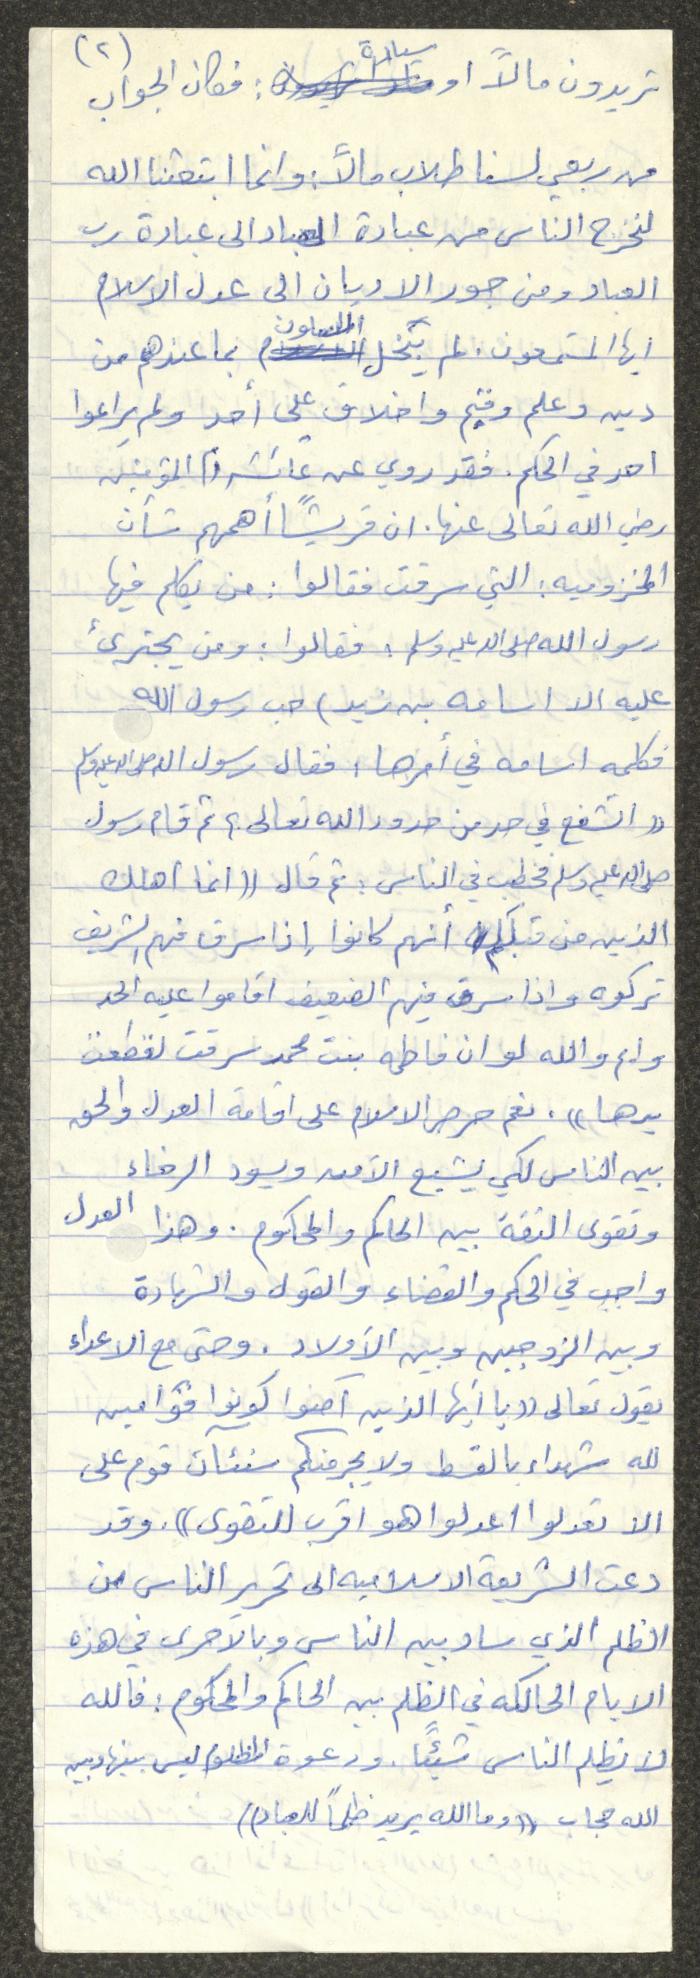 (٢)
تريدون مالاً او سيادة : فكان الجواب
من ربعي لسنا طلاب مالاً : وانما ابتعثنا الله
لنخرج الناس من عبادة العباد الى عبادة رب
العباد ومن جور الاديان الى عدل الاسلام
ايها المستمعون . لم يبخل المسلمون بما عندهم من
دين وعلم وقيم واخلاق على أحد ولم يراعوا
احد في الحكم . فقد روي عن عائشه ام المؤمنين
رضي الله تعالى عنها . ان قريشاً أهمهم شأن
المخزوميه : التي سرقت فقالوا : من يكلم فيها
رسول الله صلى الله عليه وسلم : فقالوا : ومن يجترئ
عليه الا اسامه بن زيد) حب رسول الله
فكلمه اسامه في أمرها : فقال رسول الله صلى الله عليه وسلم
(( اتشفع في حد من حدود الله تعالى ؟ ثم قام رسول
صلى الله عليه وسلم فخطب في الناس : ثم قال (( انما اهلك
الذين من قبلكم أنهم كانوا إذا سرق فيهم الشريف
تركوه واذا سرق فيهم الضعيف اقاموا عليه الحد
وايم والله لو ان فاطمه بنت محمد سرقت لقطعت
يدها )) . نعم حرص الاسلام على اقامة العدل والحق
بين الناس لكي يشيع الأمن ويسود الرخاء
وتقوى الثقة بين الحاكم والمحكوم . وهذا العدل
واجب في الحكم والقضاء والقول والشهادة
وبين الزوجين وبين الأولاد . وحتى مع الاعداء
يقول تعالى (( يا أيها الذين آمنوا كونوا قوّامين
لله شهداء بالقسط ولا يجرمنكم شنئآن قوم على
الا تعدلوا اعدلوا هو اقرب للتقوى )) . وقد
دعت الشريعة الاسلاميه الى تحرير الناس من
الظلم الذي ساد بين الناس وبالأحرى في هذه
الايام الحالكه في الظلم بين الحاكم والمحكوم : فالله
لا يظلم الناس شيئاً . ودعوة المظلوم ليس بينها وبين
الله حجاب (( وما الله يريد ظلماً للعباد ))